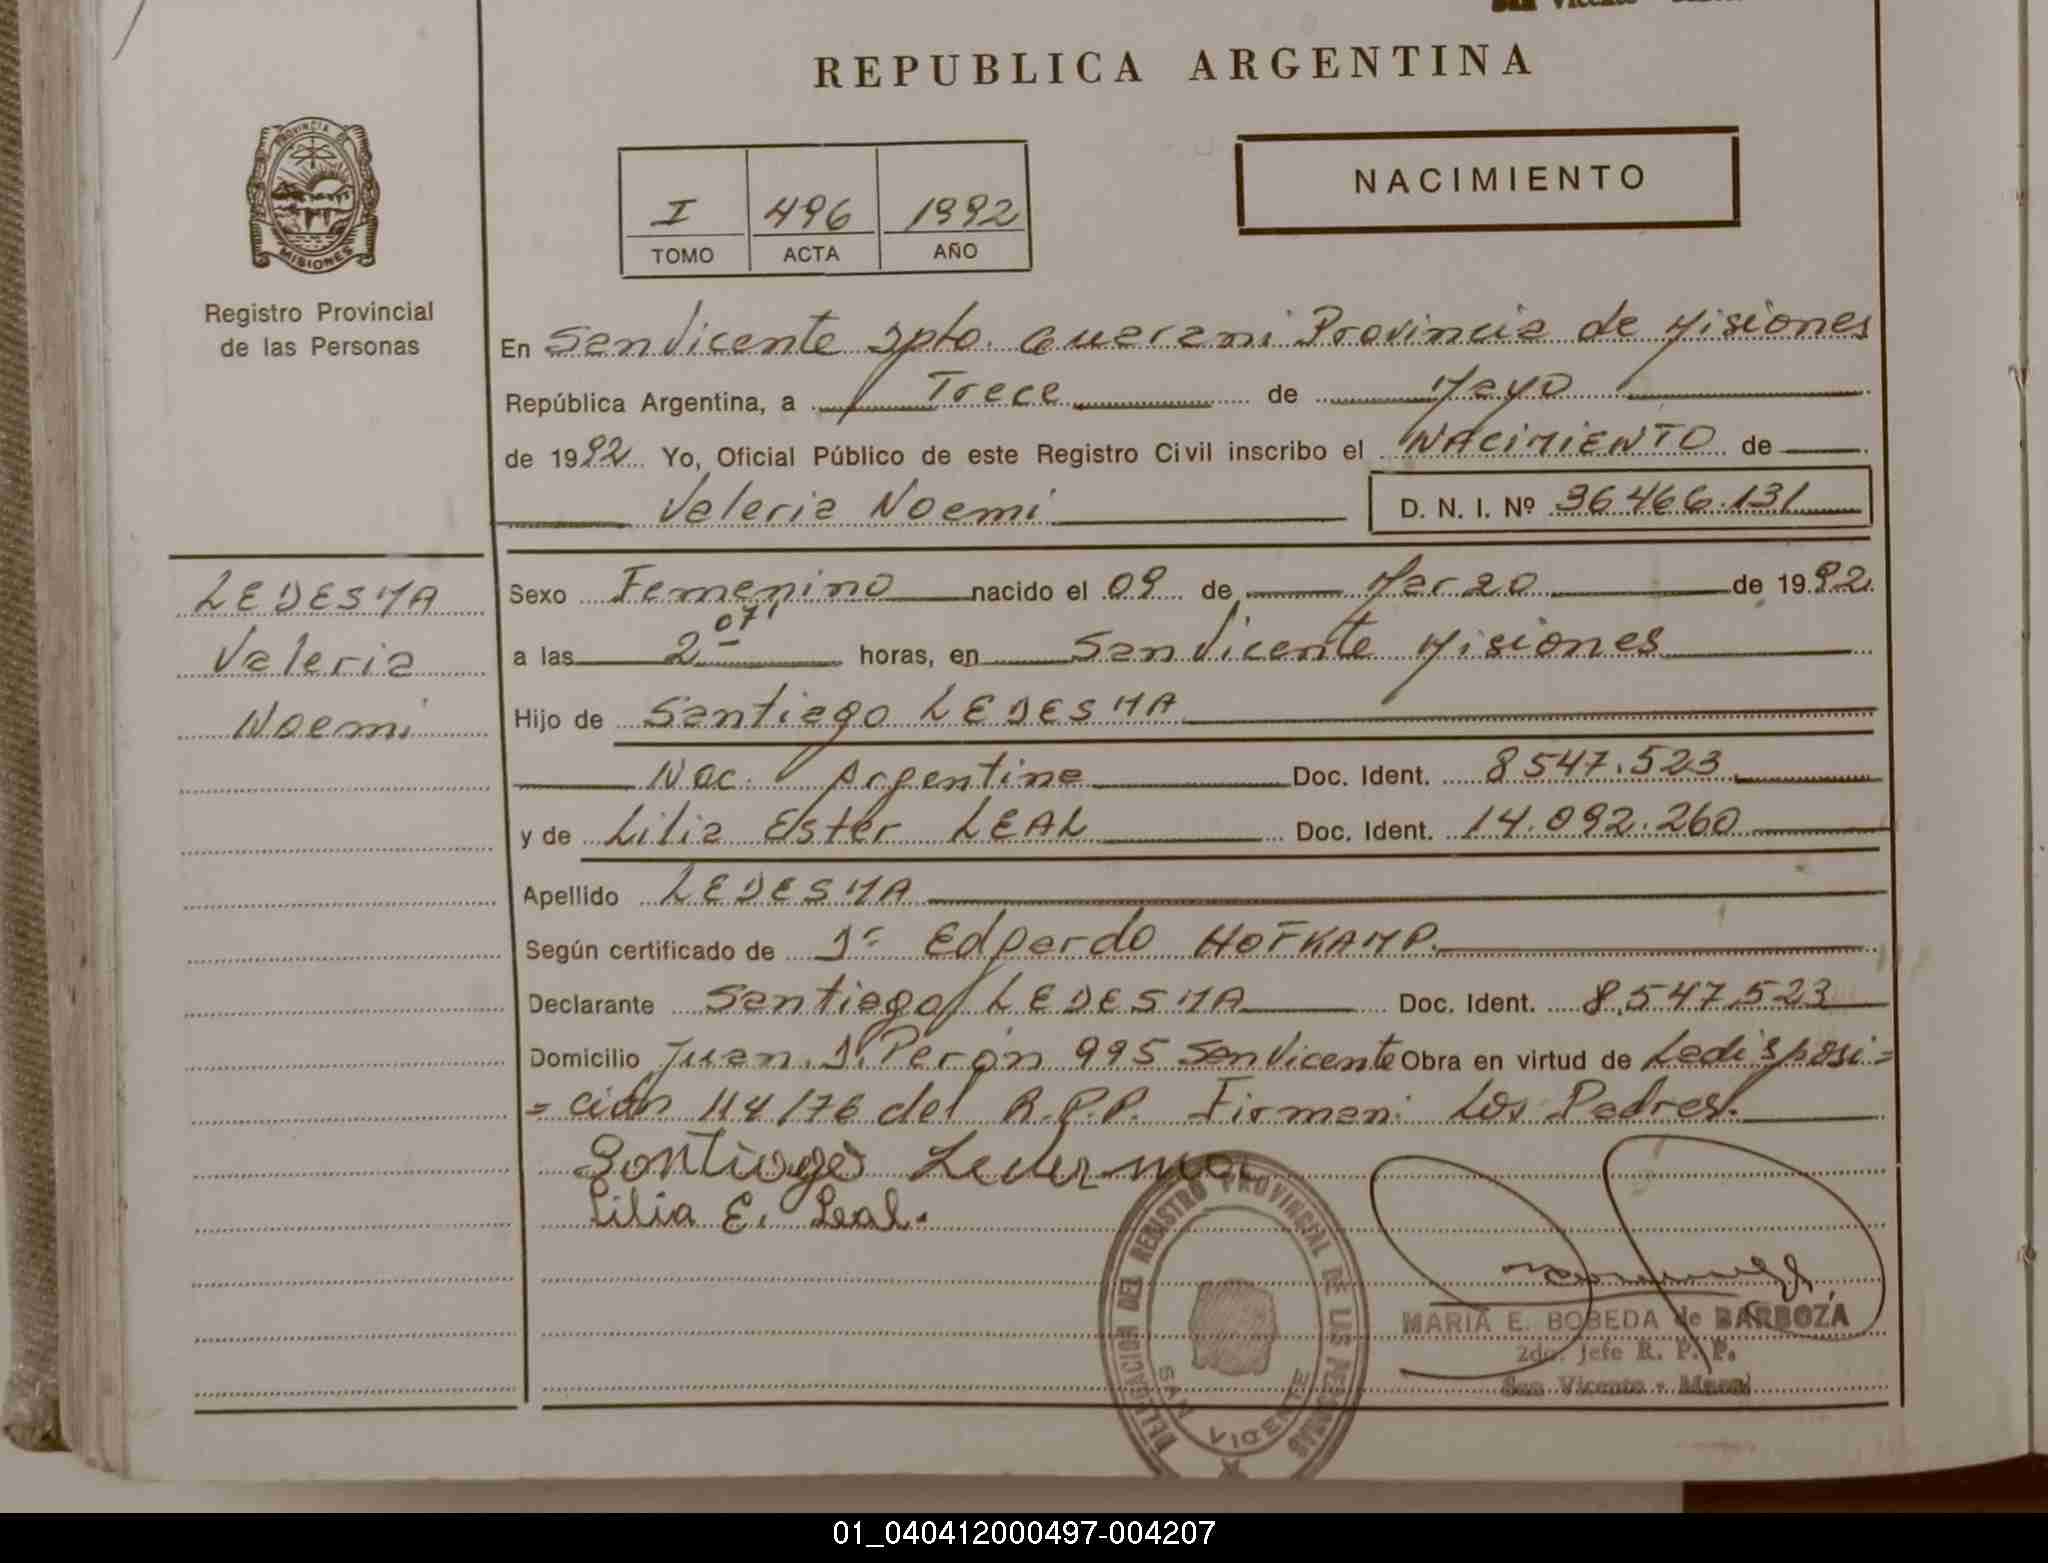 REPUBLICA ARGENTINA
PROVINCIA DE
MISIONES
Registro Provincial
de las Personas
I 496 1992
TOMO ACTA AÑO
NACIMIENTO
En San Vicente Dpto. Guarani Provincia de Misiones
República Argentina, a Trece de Mayo
de 1992 Yo, Oficial Público de este Registro Civil inscribo el NACIMIENTO de
Valeria Noemi D. N. I. Nº 36466.131
LEDESMA
Valeria
Noemi
Sexo Femenino nacido el 09 de Marzo de 1992
a las 2 07' horas, en San Vicente Misiones
Hijo de Santiago LEDESMA
Nac. Argentina Doc. Ident. 8547.523
y de Lilia Ester LEAL Doc. Ident. 14.092.260
Apellido LEDESMA
Según certificado de Dr Edgardo HOFKAMP.
Declarante Santiago LEDESMA Doc. Ident. 8.547.523
Domicilio Juan. D. Perón 995 San Vicente Obra en virtud de La disposi=
=ción 114/76 del R.P.P. Firman: Los Padres.
Santiago Ledezma
Lilia E. Leal.
DELEGACION DEL REGISTRO PROVINCIAL DE LAS PERSONAS
SAN VICENTE
MARIA E. BOBEDA de BARBOZA
2do. Jefe R. P. P.
San Vicente -
01_040412000497-004207